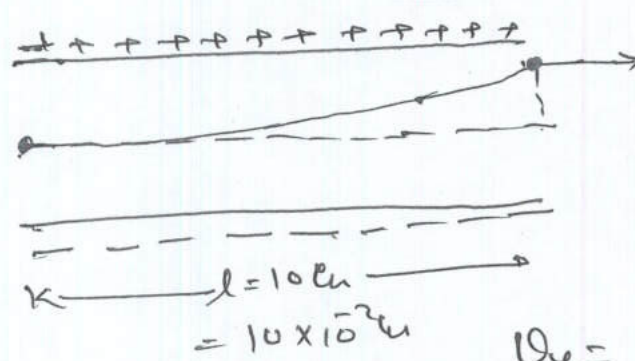 + + + + + + + + + + + +
l = 10 cm
= 10 × 10⁻² m